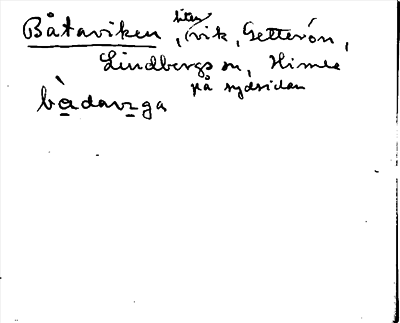 Båtaviken, liten vik, Getterön,
Lindbergs sn, Himle
på sydsidan
bàdaviga